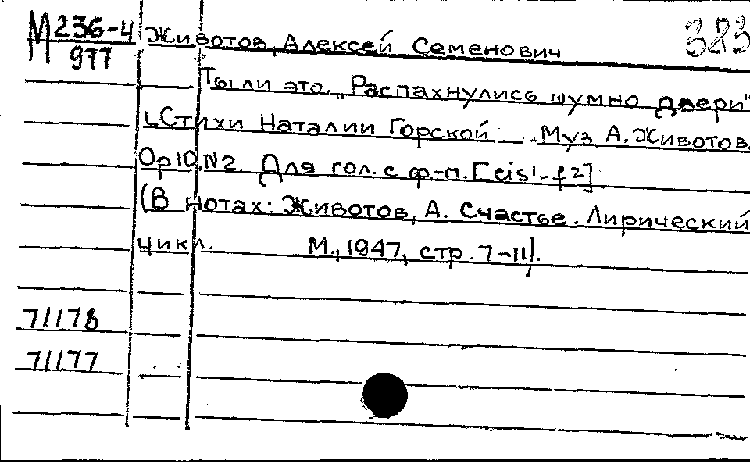 М 236-4 Животов, Алексей Семенович 383
977
Ты ли это. "Распахнулись шумно двери"
[Стихи Наталии Горской. Муз А. Животов.
Op 10, N2 Для гол. с ф-п. [cis1-f2]
(В нотах: Животов, А. Счастье. Лирический
цикл. М., 1947, стр. 7-11).
71178
71177